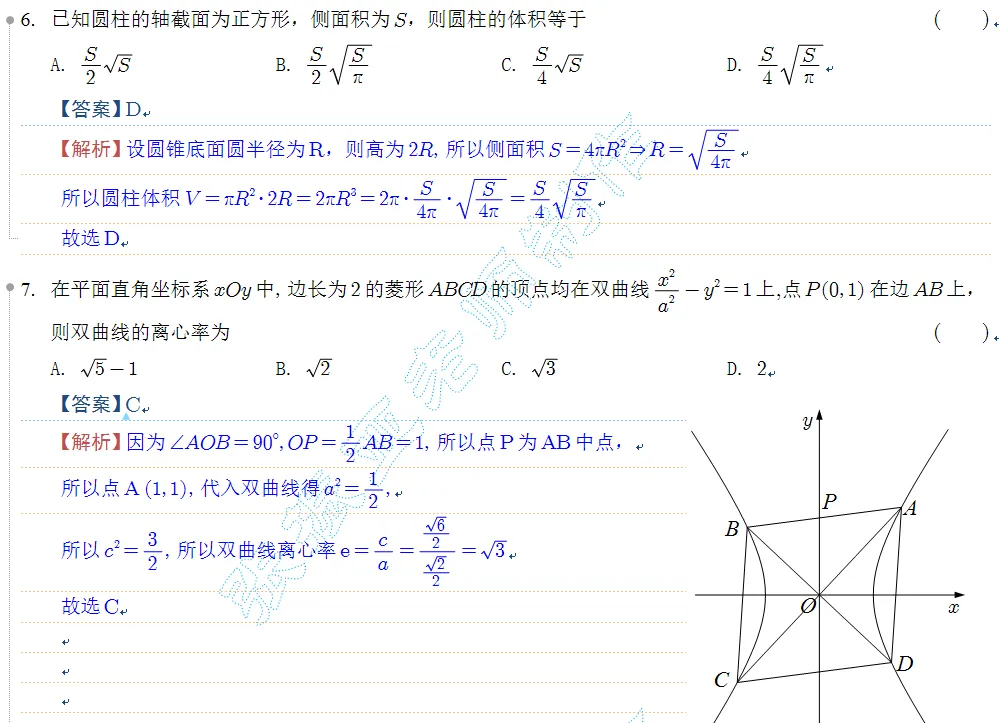 6. 已知圆柱的轴截面为正方形，侧面积为S，则圆柱的体积等于 ( )
A. S/2 √S B. S/2 √(S/π) C. S/4 √S D. S/4 √(S/π)
【答案】D
【解析】设圆锥底面圆半径为R，则高为2R, 所以侧面积S=4πR²⇒R=√(S/4π)
所以圆柱体积V=πR²·2R=2πR³=2π·S/4π·√(S/4π)=S/4 √(S/π)
故选D
7. 在平面直角坐标系xOy中, 边长为2的菱形ABCD的顶点均在双曲线x²/a²-y²=1上,点P(0,1)在边AB上，
则双曲线的离心率为 ( )
A. √5-1 B. √2 C. √3 D. 2
【答案】C
【解析】因为∠AOB=90°, OP=1/2 AB=1, 所以点P为AB中点，
所以点A (1,1), 代入双曲线得a²=1/2,
所以c²=3/2, 所以双曲线离心率e=c/a=(√6/2)/(√2/2)=√3
故选C
y
P
A
B
O
x
D
C